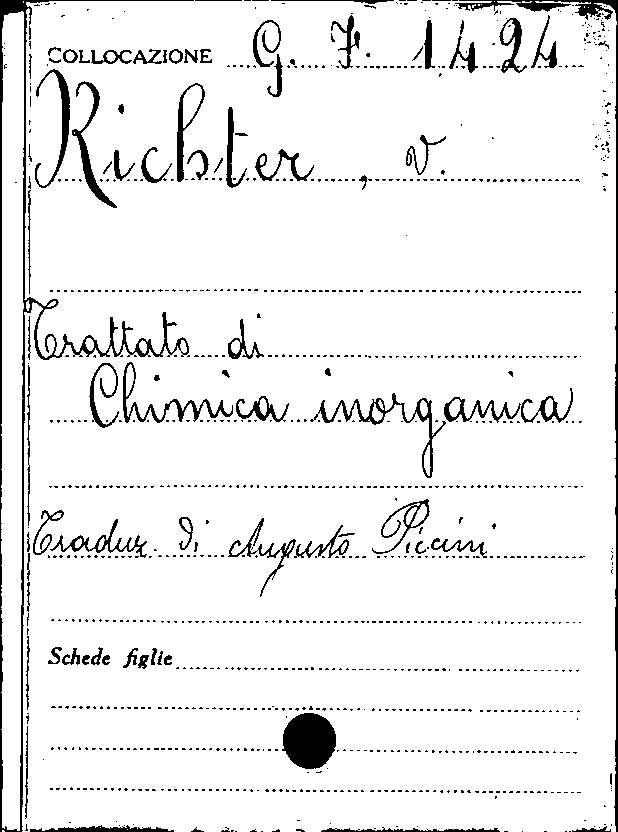 COLLOCAZIONE G. F. 1424
Richter, v.
Trattato di
Chimica inorganica
Traduz. di Augusto Piccini
Schede figlie